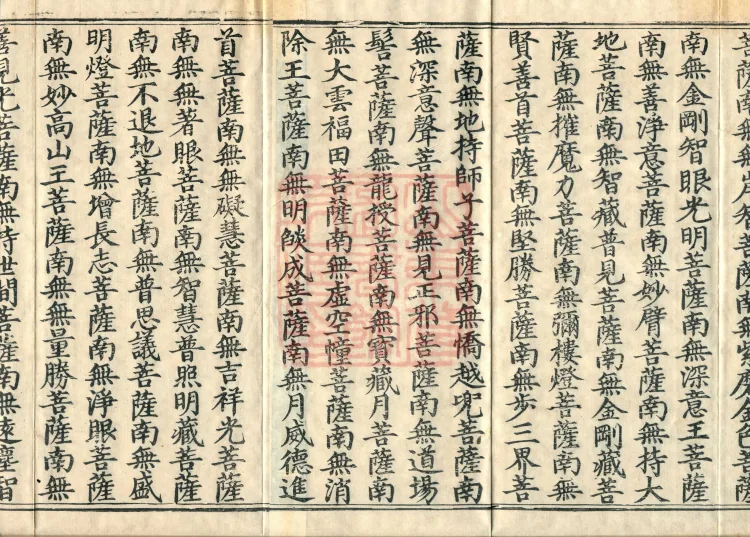 菩薩南無紫磨金色菩薩
南無金剛智眼光明菩薩南無深意王菩薩
南無善淨意菩薩南無妙臂菩薩南無持大
地菩薩南無智藏普見菩薩南無金剛藏菩
薩南無摧魔力菩薩南無彌樓燈菩薩南無
賢善首菩薩南無堅勝菩薩南無步三界菩
薩南無地持師子菩薩南無憍越兜菩薩南
無深意聲菩薩南無見正邪菩薩南無道場
髻菩薩南無龍授菩薩南無寶藏月菩薩南
無大雲福田菩薩南無虛空幢菩薩南無消
除王菩薩南無明燄成菩薩南無月威德進
首菩薩南無無礙慧菩薩南無吉祥光菩薩
南無無著眼菩薩南無智慧普照明藏菩薩
南無不退地菩薩南無普思議菩薩南無盛
明燈菩薩南無增長志菩薩南無淨眼菩薩
南無妙高山王菩薩南無無量勝菩薩南無
善見光菩薩南無持世間菩薩南無